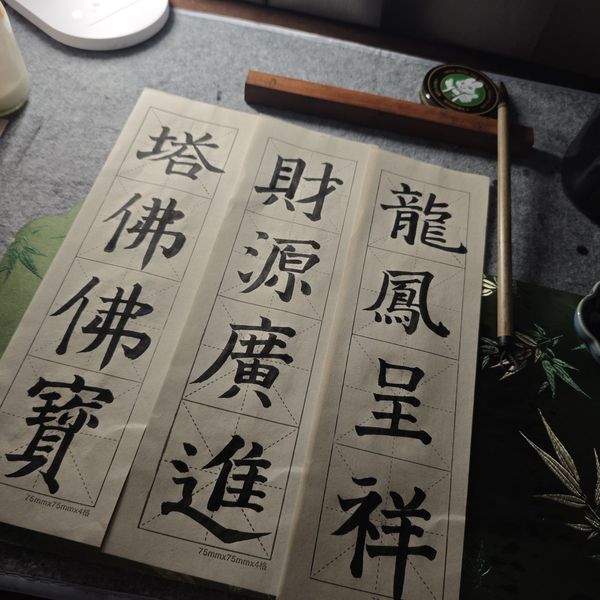 龍鳳呈祥
財源廣進
75mmx75mmx4格
塔佛佛寶
75mmx75mmx4格